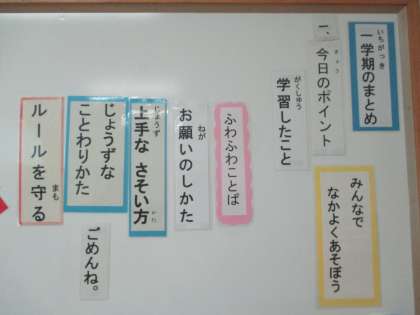 一学期のまとめ
一、今日のポイント
みんなで
なかよくあそぼう
学習したこと
ふわふわことば
お願いのしかた
上手な さそい方
じょうずな
ことわりかた
ごめんね。
ルールを守る